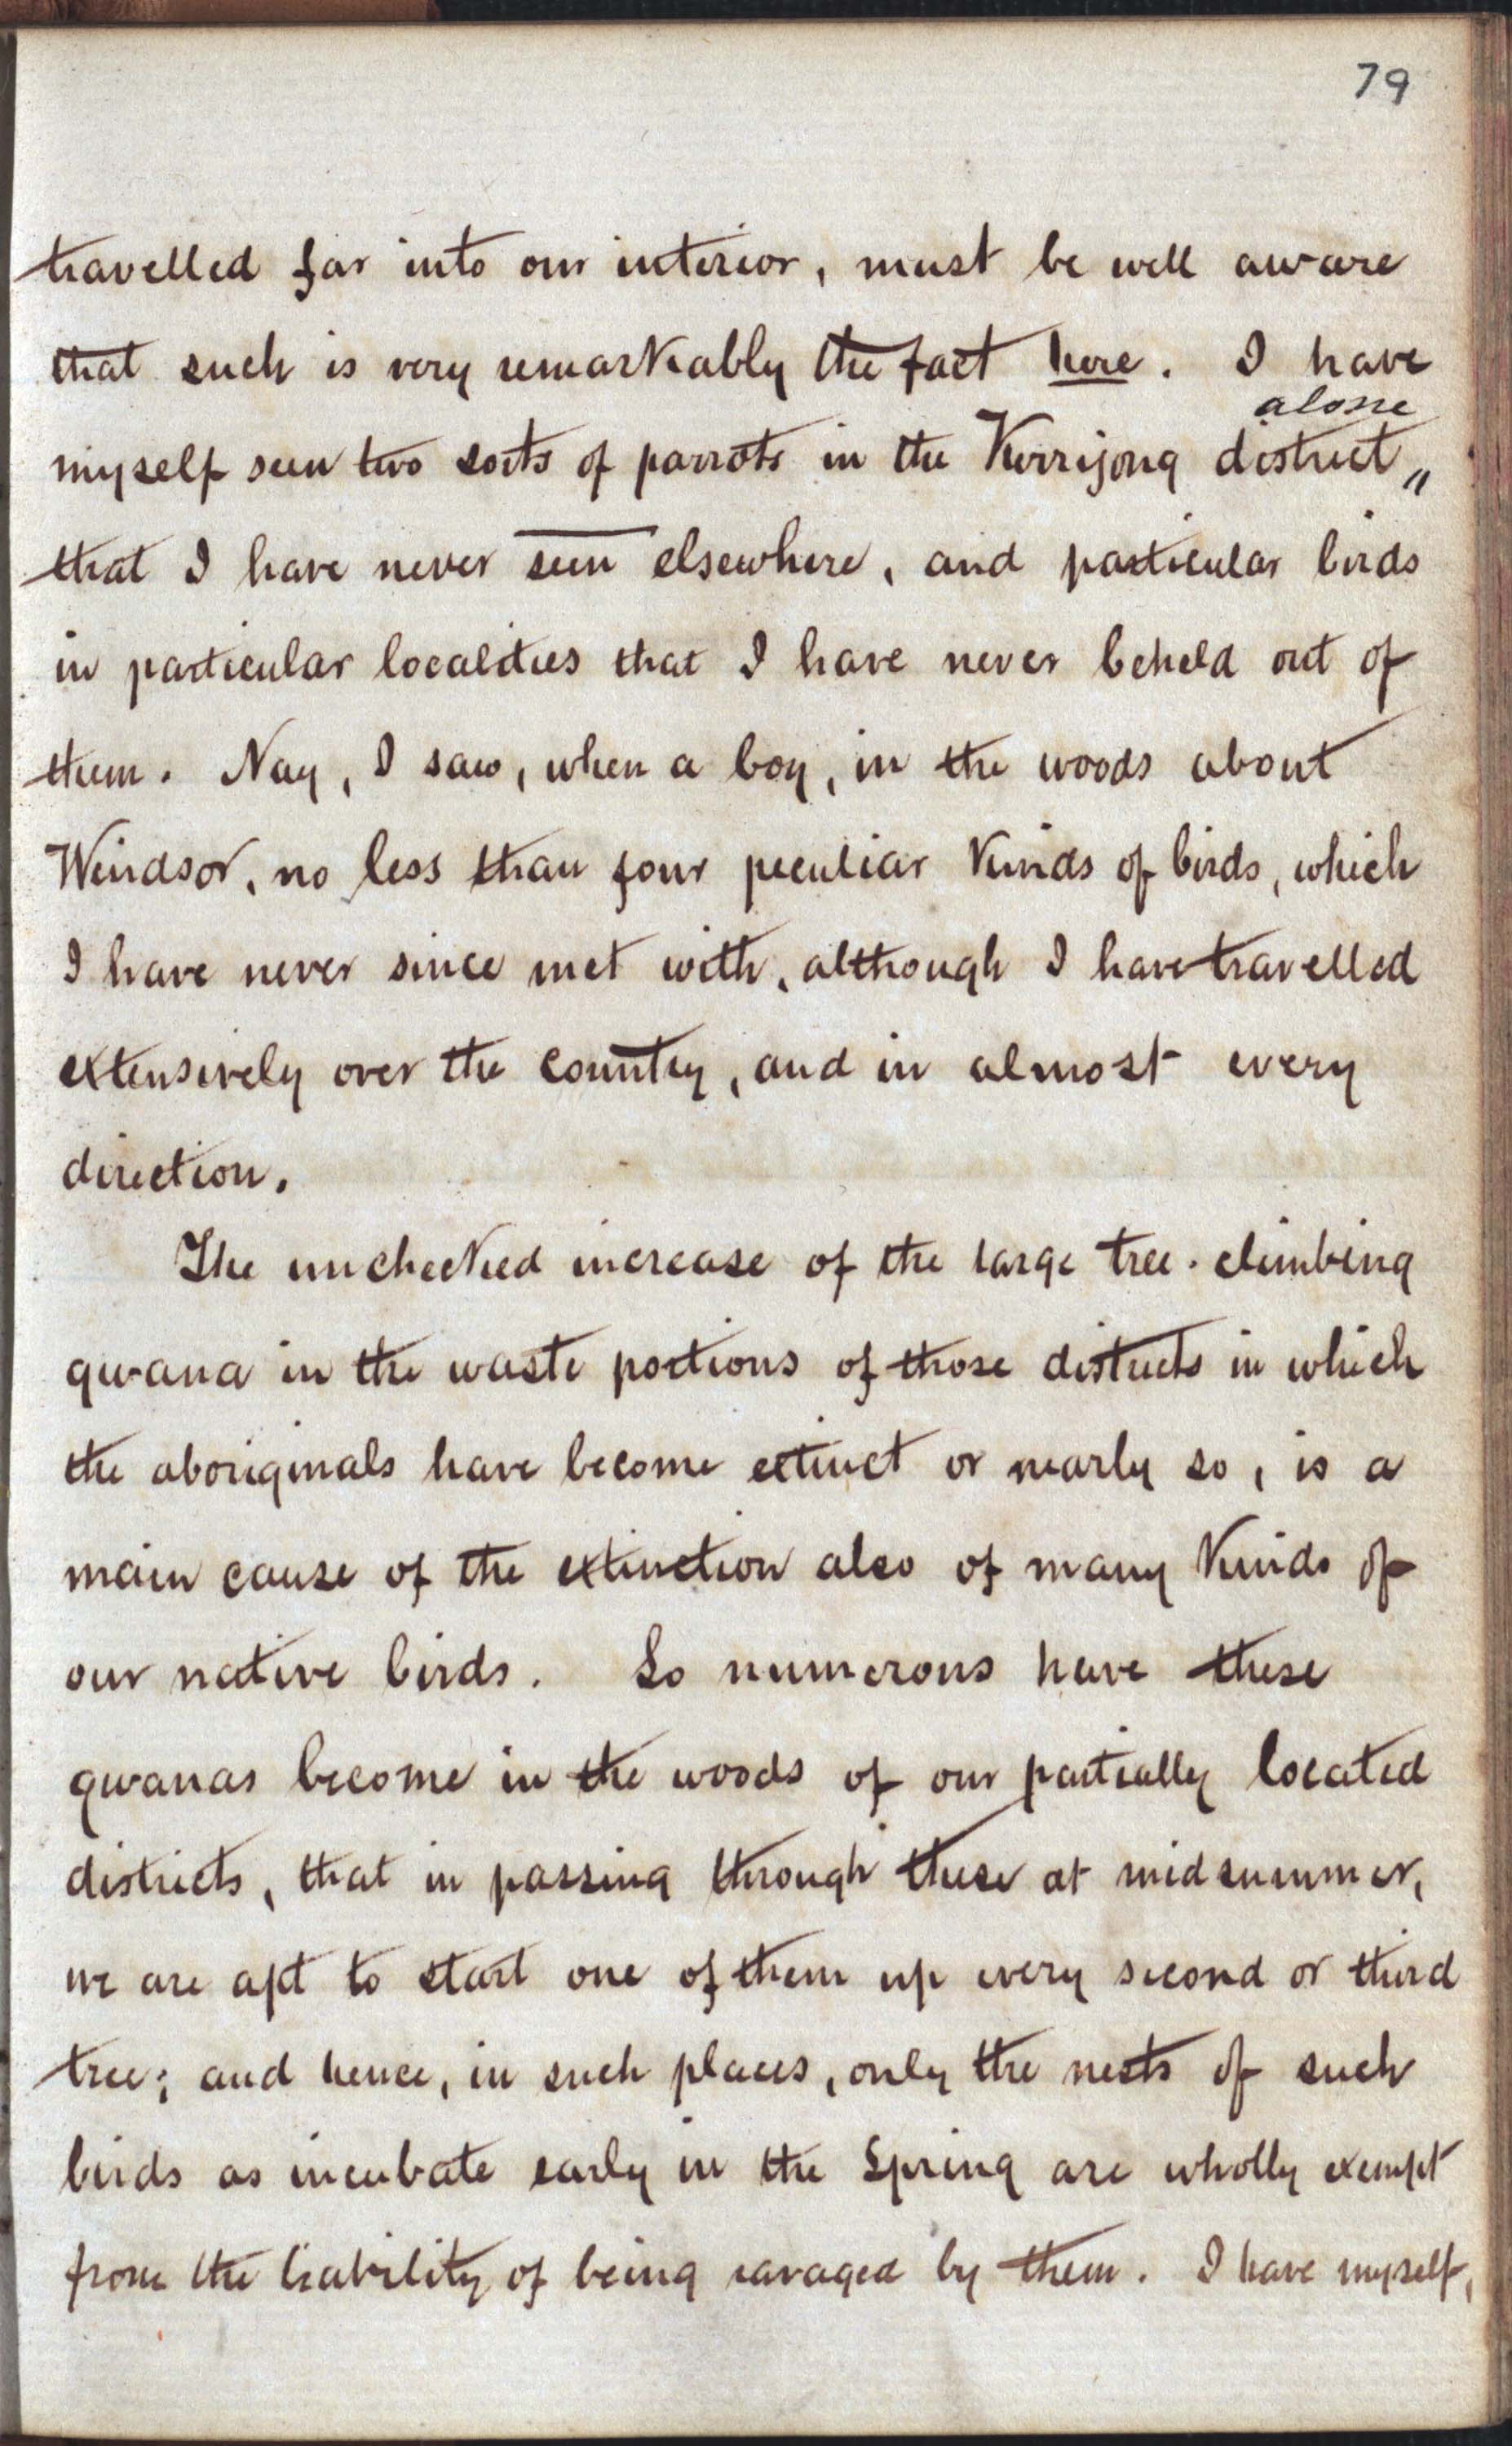 79
travelled far into our interior, must be well aware
that such is very remarkably the fact here. I have
alone
myself seen two sorts of parrots in the Kurrijong district,,
that I have never seen elsewhere, and particular birds
in particular localities that I have never beheld out of
them. Nay, I saw, when a boy, in the woods about
Windsor, no less than four peculiar kinds of birds, which
I have never since met with, although I have travelled
extensively over the country, and in almost every
direction.
The unchecked increase of the large tree-climbing
gwana in the waste portions of those districts in which
the aboriginals have become extinct or nearly so, is a
main cause of the extinction also of many kinds of
our native birds. So numerous have these
gwanas become in the woods of our partially located
districts, that in passing through these at midsummer,
we are apt to start one of them up every second or third
tree; and hence, in such places, only the nests of such
birds as incubate early in the Spring are wholly exempt
from the liability of being ravaged by them. I have myself,